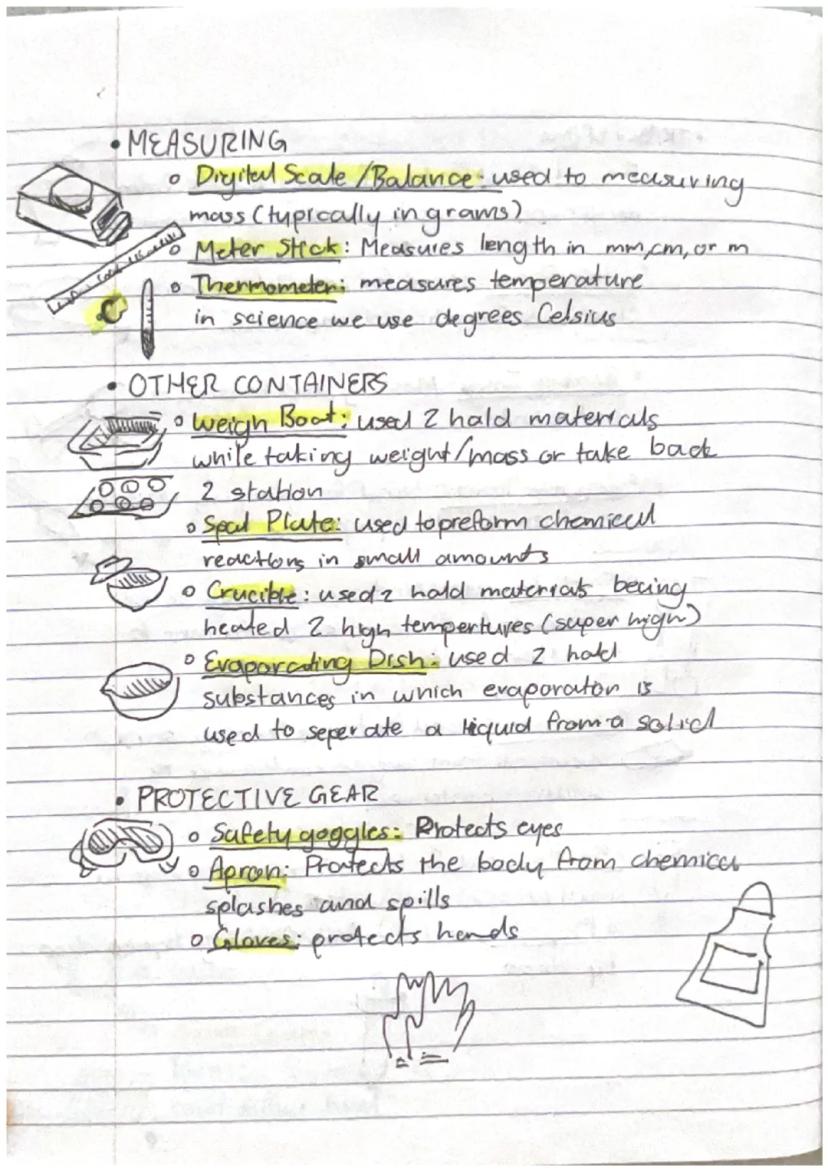 • MEASURING
o Digital Scale/Balance: used to measuring
mass (typically in grams)
o Meter Stick: Measures length in mm, cm, or m
o Thermometer: measures temperature
in science we use degrees Celsius
C
• OTHER CONTAINERS
o weigh Boat: used 2 hold materials
while taking weight/mass or take back
2 station
o Spot Plate: used to preform chemical
reactions in small amounts
o Crucible: used 2 hold materials becing
heated 2 high tempertures (super high)
o Evaporating Dish: used 2 hold
substances in which evaporator is
used to seperate a liquid from a solid
• PROTECTIVE GEAR
o Safety goggles: Protects eyes
o Apron: Protects the body from chemical
splashes and spills
o Gloves: protects hands